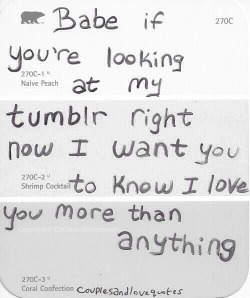 Babe if
270C
you're looking
270C-1
Naive Peach
at my
tumblr right
now I want you
270C-2
Shrimp Cocktail
to know I love
you more than
anything
270C-3
Coral Confection
couplesandlovequotes